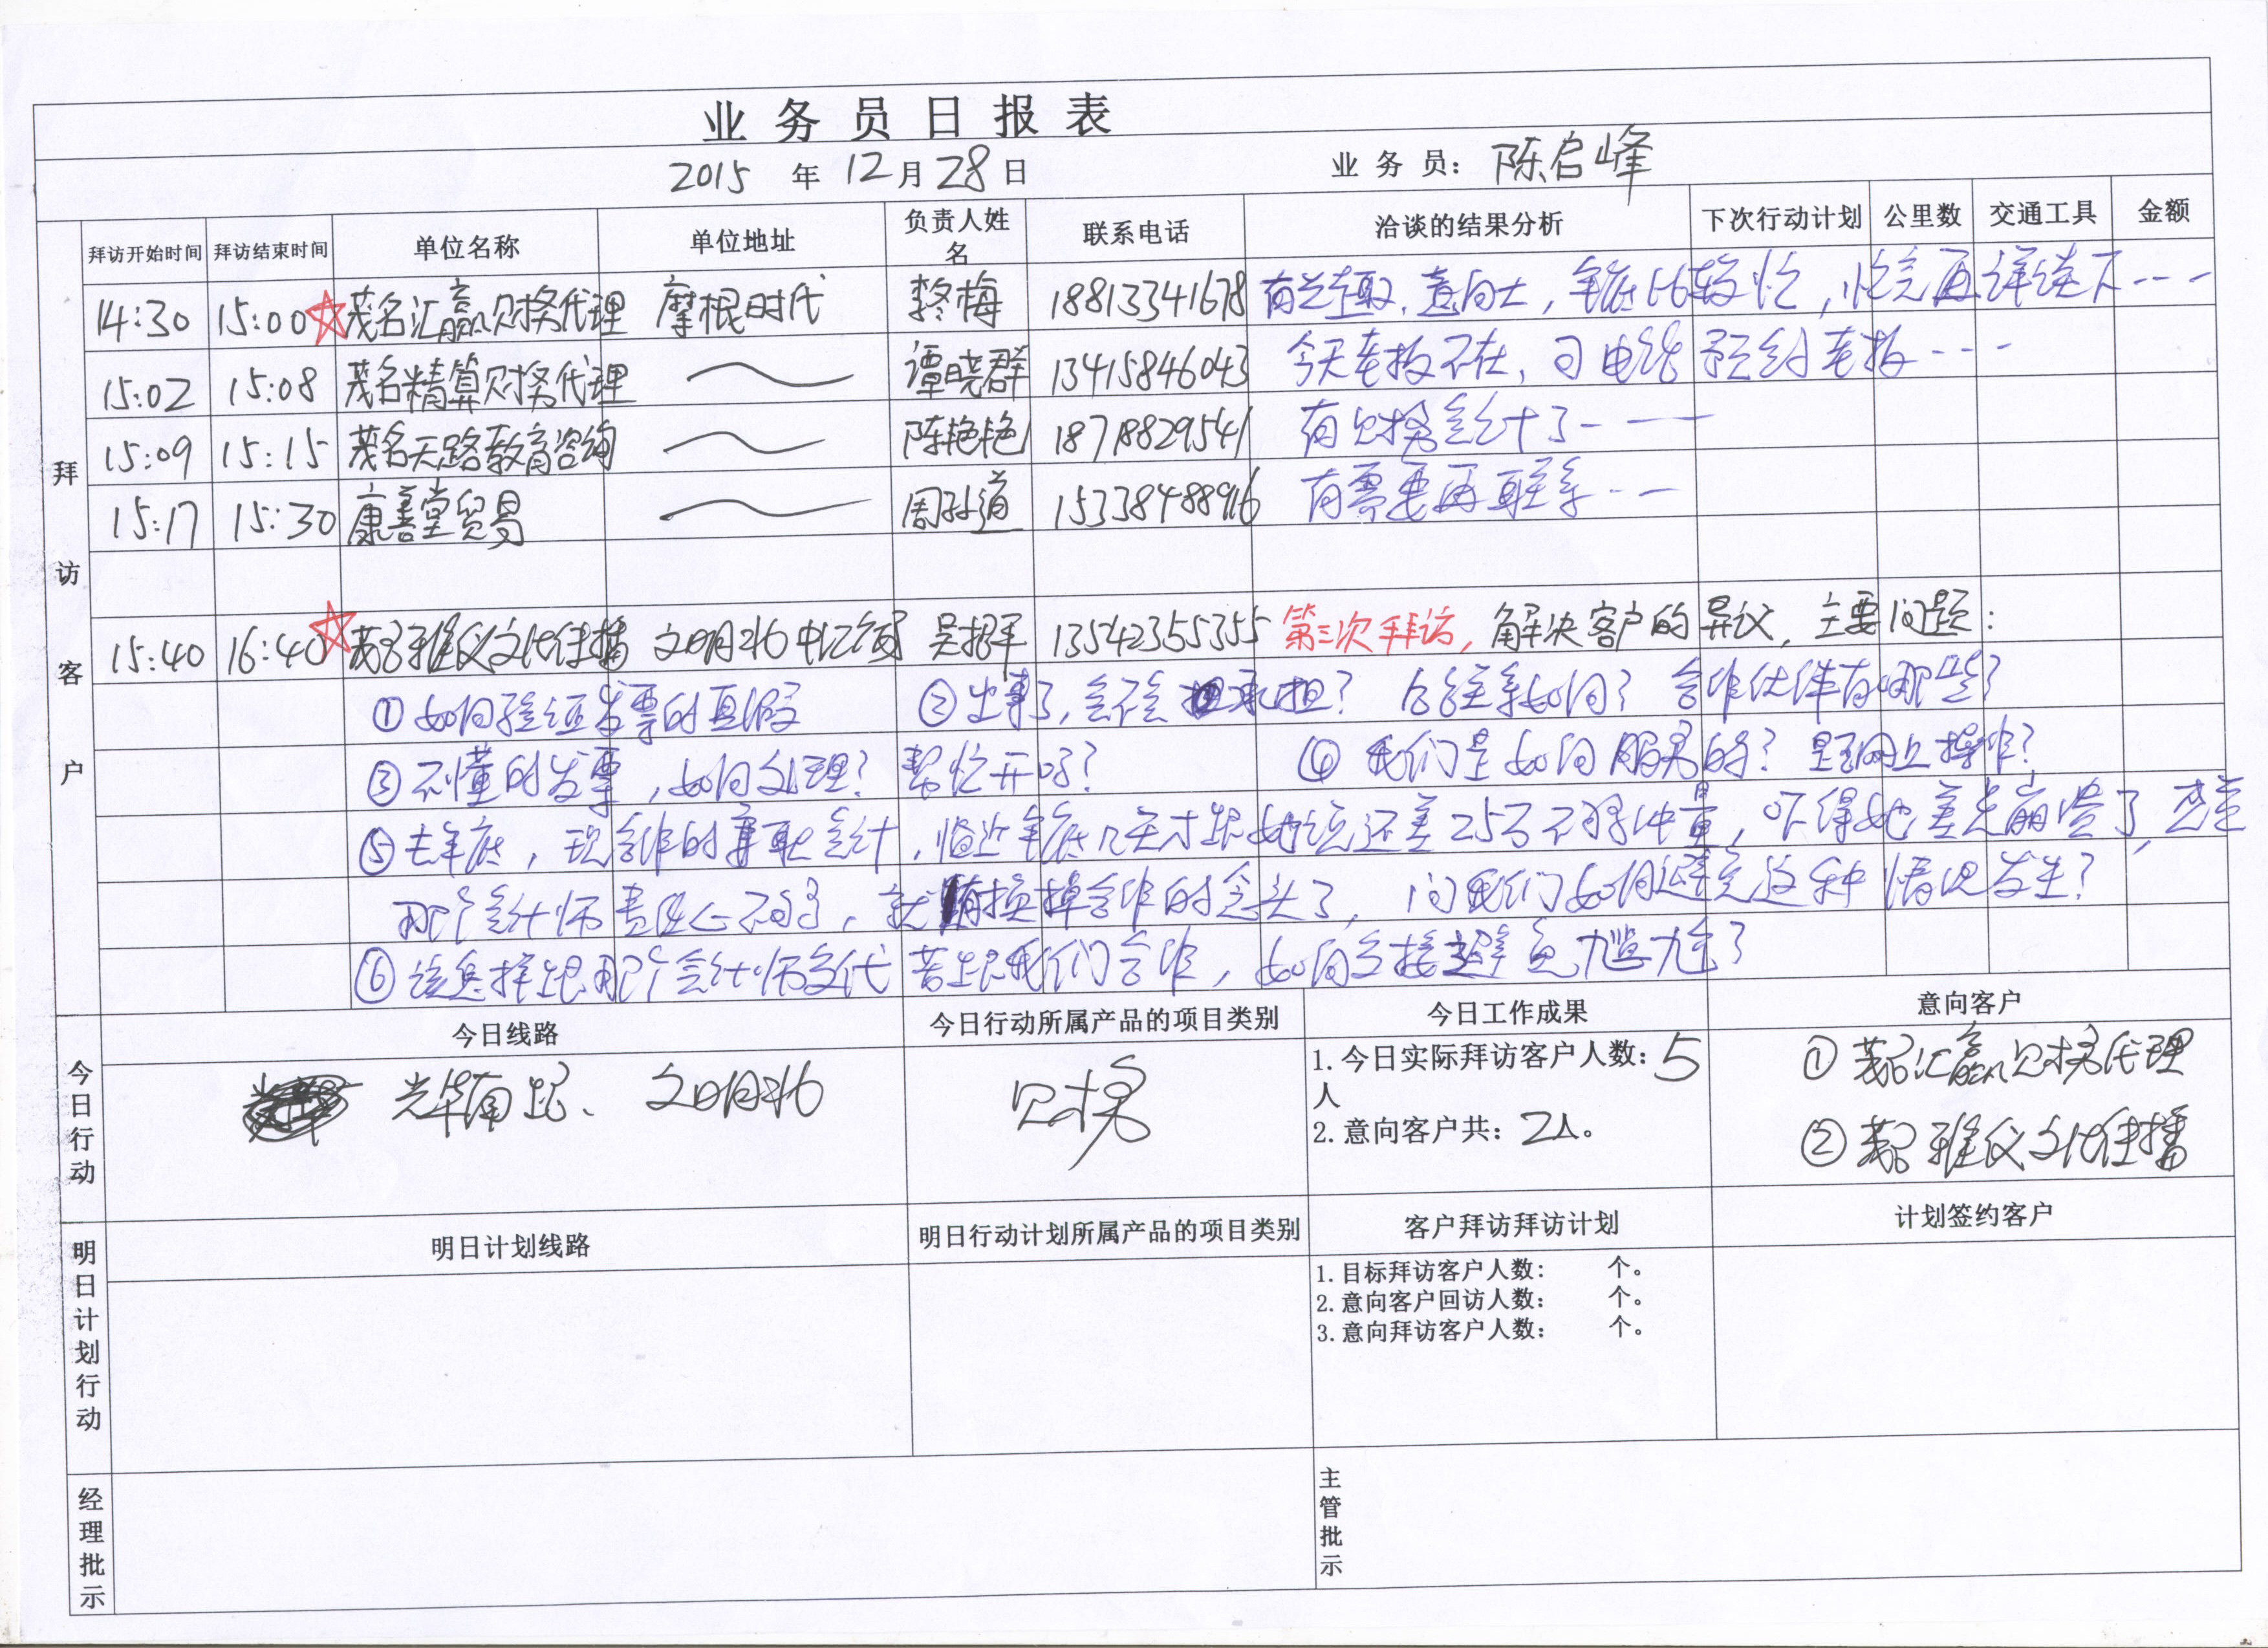 业务员日报表
2015 年 12 月 28 日 业务员: 陈启峰
拜访客户
拜访开始时间 拜访结束时间 单位名称 单位地址 负责人姓名 联系电话 洽谈的结果分析 下次行动计划 公里数 交通工具 金额
14:30 15:00 ☆茂名汇赢财务代理 摩根时代 李梅 18813341678 有兴趣,意向大,年底比较忙,忙完再详谈下---
15:02 15:08 茂名精算财务代理 谭晓群 13415846043 今天老板不在,可电话预约老板---
15:09 15:15 茂名天路教育咨询 陈艳艳 18718829541 有财务会计了---
15:17 15:30 康善堂贸易 周孙道 15338488916 有需要再联系---
15:40 16:40 ☆茂名雅仪文化传播 文明北 吴招平 13542355355 第三次拜访,解决客户的异议,主要问题:
①如何验证发票的真假 ②出事了,会不会承担?关系如何?合作伙伴有哪些?
③不懂的发票,如何处理?帮忙开吗? ④我们是如何服务的?是网上操作?
⑤去年底,现合作的兼职会计,临近年底几天才跟她说还差25万不够冲量,吓得她差点崩溃了,
那个会计师责任心不够,就有换掉合作的念头了,问我们如何避免这种情况发生?
⑥该怎样跟那个会计师交代 若跟我们合作,如何交接避免尴尬?
今日行动
今日线路 今日行动所属产品的项目类别 今日工作成果 意向客户
光华南路、文明北 财务
1.今日实际拜访客户人数: 5人
2.意向客户共: 2人。
①茂名汇赢财务代理
②茂名雅仪文化传播
明日计划行动
明日计划线路 明日行动计划所属产品的项目类别 客户拜访拜访计划 计划签约客户
1.目标拜访客户人数: 个。
2.意向客户回访人数: 个。
3.意向拜访客户人数: 个。
经理批示 主管批示